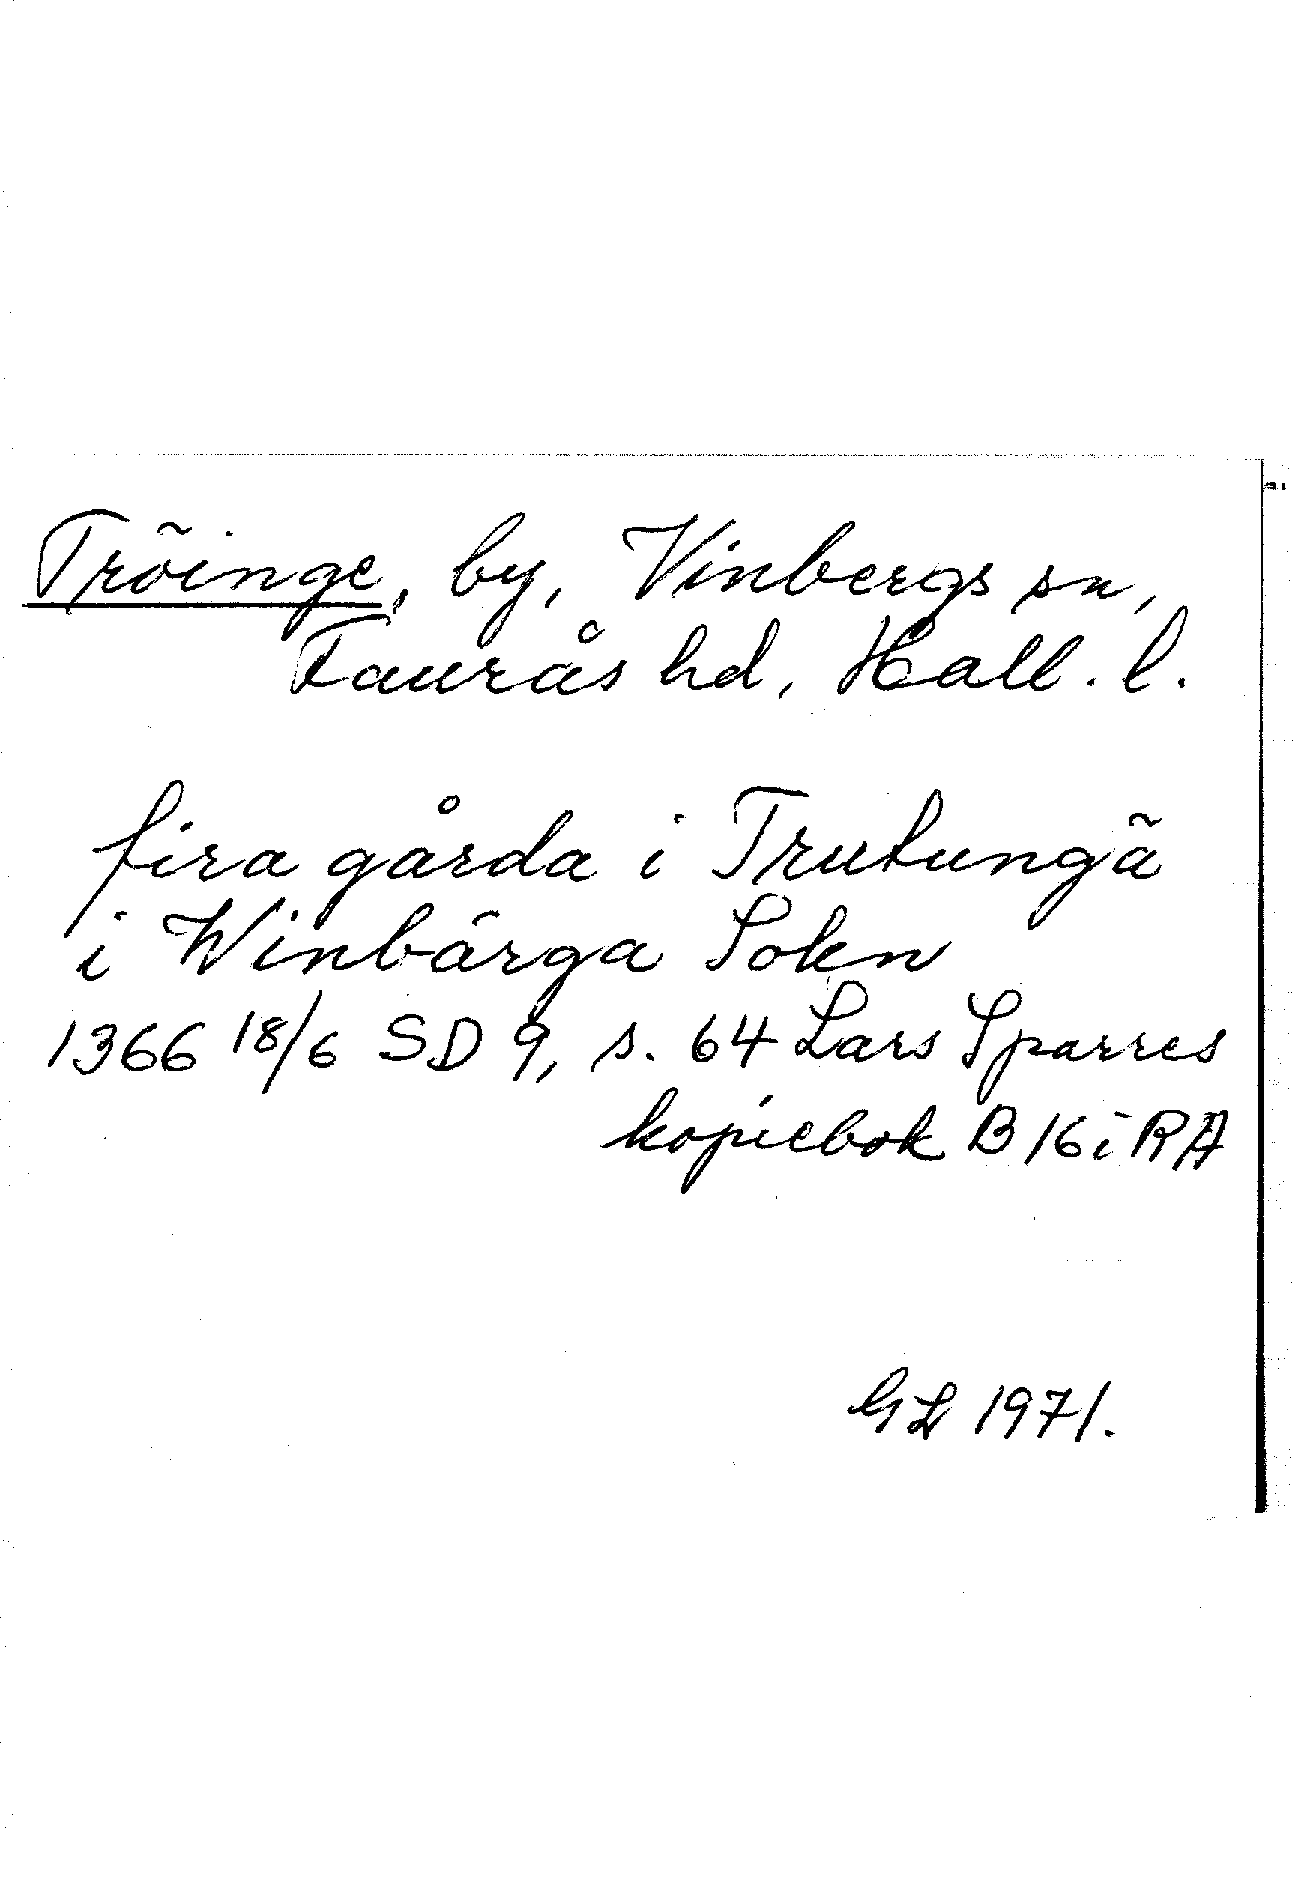 Tröinge, by, Vinbergs sn,
Faurås hd, Hall. l.
fira gårda i Trutungä
i Winbärga Sokn
1366 18/6 SD 9, s. 64 Lars Sparres
kopiebok B 16 i RA
GL 1971.